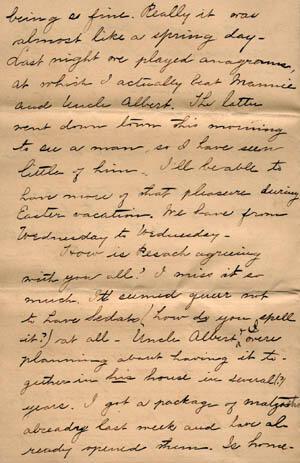 being so fine. Really it was
almost like a spring day-
Last night we played anagrams,
at which I actually beat Mannie
and Uncle Albert. The latter
went down town this morning
to see a man, so I have seen
little of him. I'll be able to
have more of that pleasure during
Easter vacation. We have from
Wednesday to Wednesday-
How is Pesach agreeing
with you all? I miss it so
much. It seemed queer not
to have Sedars (how do you spell
it?) at all - Uncle Albert & I were
planning about having it to-
gether in his house in several(?)
years. I got a package of matzoths
already last week and have al-
ready opened them. Is home-